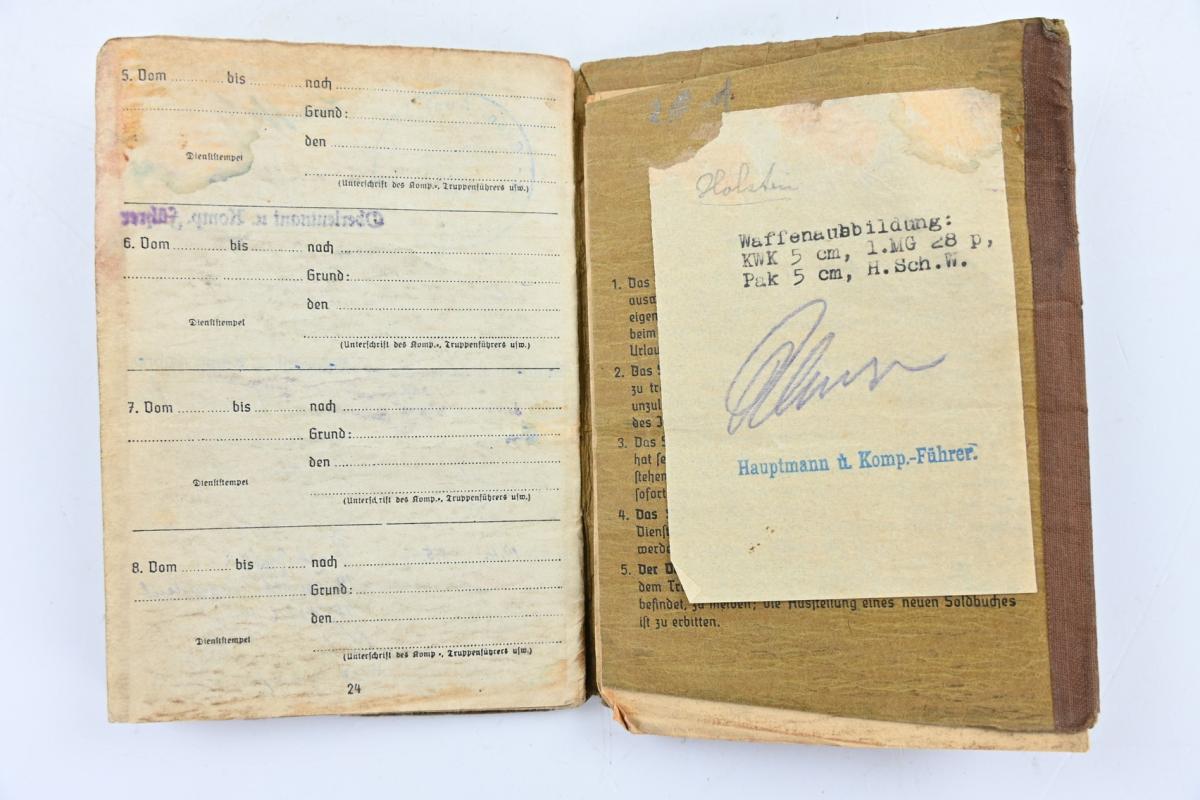 5. Vom ............ bis ............ nach ............
Grund: ............
den ............
Dienststempel
(Unterschrift des Komp.-, Truppenführers usw.)
Oberleutnant u. Komp. Führer
6. Vom ............ bis ............ nach ............
Grund: ............
den ............
Dienststempel
(Unterschrift des Komp.-, Truppenführers usw.)
7. Vom ............ bis ............ nach ............
Grund: ............
den ............
Dienststempel
(Unterschrift des Komp.-, Truppenführers usw.)
8. Vom ............ bis ............ nach ............
Grund: ............
den ............
Dienststempel
(Unterschrift des Komp.-, Truppenführers usw.)
24
Holstein
Waffenausbildung:
KWK 5 cm, l.MG 28 p,
Pak 5 cm, H.Sch.W.
Hauptmann u. Komp.-Führer.
1. Das
eigen
beim
Urlau
2. Das
zu tr
unzul
des J
3. Das S
hat se
stehen
sofort
4. Das
Dienst
werde
5. Der D
dem Tr
befindet, zu melden; die Ausstellung eines neuen Soldbuches
ist zu erbitten.